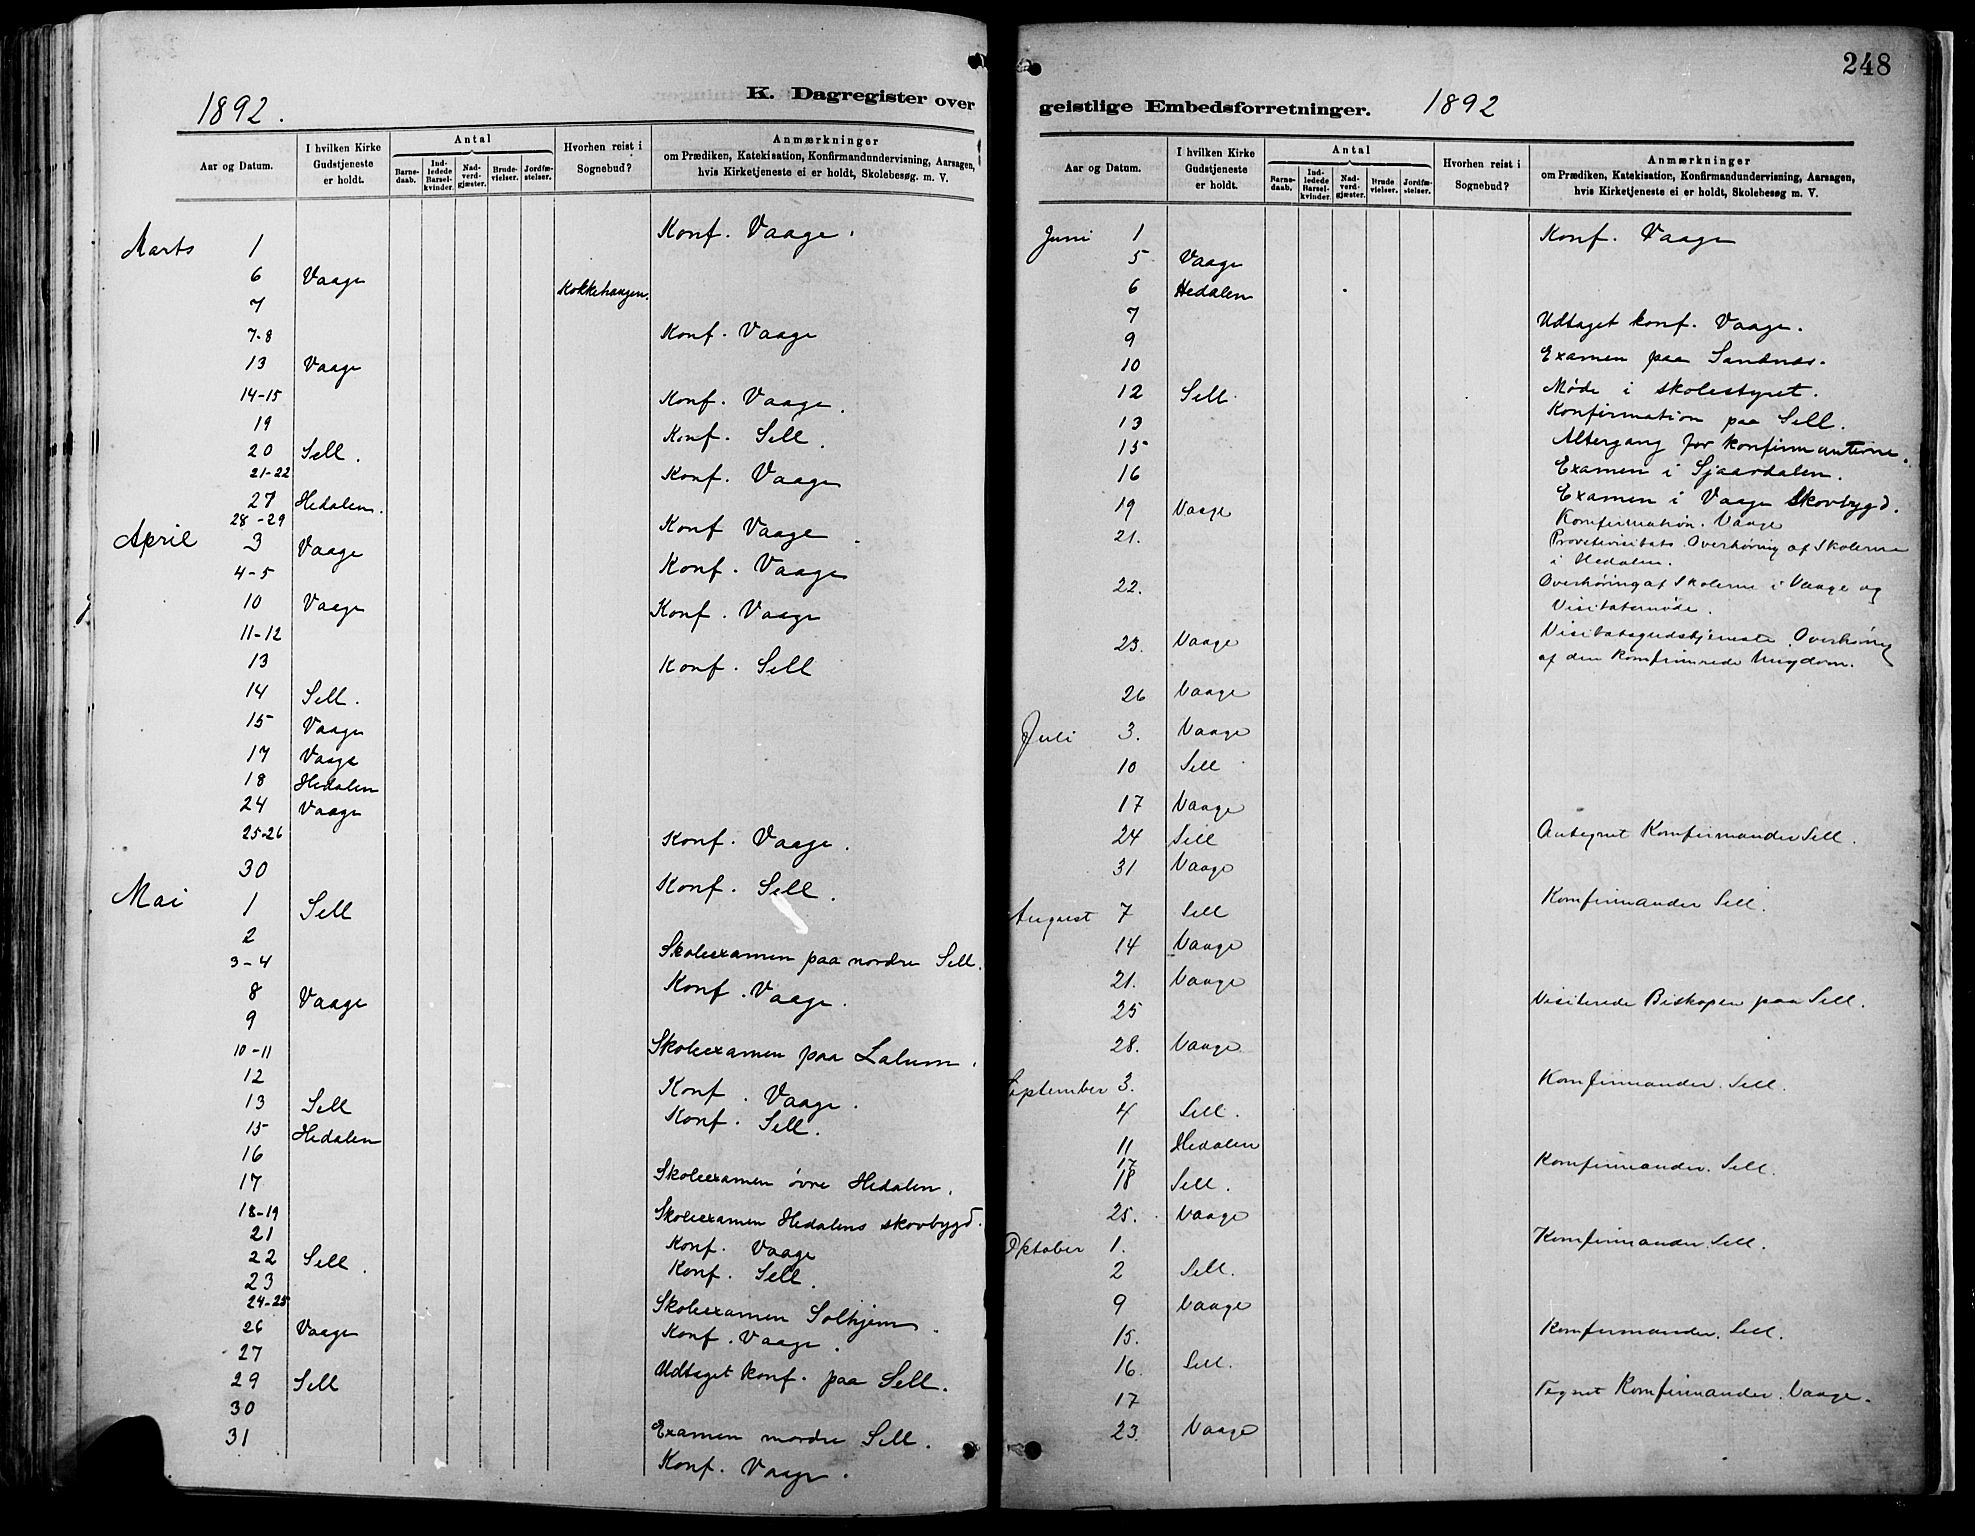 1892.
K. Dagregister over
Aar og Datum.
I hvilken Kirke Gudstjeneste er holdt.
Antal
Barnedaab.
Indledede Barselkvinder.
Nadverdgjæster.
Brudevielser.
Jordfæstelser.
Hvorhen reist i Sognebud?
Anmærkninger
om Prædiken, Katekisation, Konfirmandundervisning, Aarsagen,
hvis Kirketjeneste ei er holdt, Skolebesøg. m. V.
Marts 1 Konf. Vaage.
6 Vaage
7 Kokkehaugen.
7-8 Konf. Vaage
13 Vaage
14-15 Konf. Vaage.
19 Konf. Sell.
20 Sell.
21-22 Konf. Vaage
27 Hedalen.
28-29 Konf Vaage.
April 3 Vaage
4-5 Konf. Vaage
10 Vaage
11-12 Konf. Vaage
13 Konf. Sell
14 Sell.
15 Vaage
17 Vaage
18 Hedalen
24 Vaage
25-26 Konf. Vaage.
30 Konf. Sell.
Mai 1 Sell
2 Skoleexamen paa nordre Sell.
3-4 Konf. Vaage.
8 Vaage
9 Skoleexamen paa Lalum.
10-11 Konf. Vaage.
12 Konf. Sell.
13 Sell
15 Hedalen
16 Skoleexamen övre Hedalen.
17 Skoleexamen Hedalens skovbygd.
18-19 Konf. Vaage
21 Konf. Sell.
22 Sell.
23 Skoleexamen Solhjem.
24-25 Konf. Vaage.
26 Vaage
27 Udtaget konf. paa Sell.
29 Sell
30 Examen nordre Sell.
31 Konf. Vaage.
248
geistlige Embedsforretninger. 1892
Aar og Datum.
I hvilken Kirke Gudstjeneste er holdt.
Antal
Barnedaab.
Indledede Barselkvinder.
Nadverdgjæster.
Brudevielser.
Jordfæstelser.
Hvorhen reist i Sognebud?
Anmærkninger
om Prædiken, Katekisation, Konfirmandundervisning, Aarsagen,
hvis Kirketjeneste ei er holdt, Skolebesøg m. V.
Juni 1 Konf. Vaage
5 Vaage
6 Hedalen
7 Udtaget konf. Vaage.
9 Examen paa Sandnes.
10 Møde i skolestyret.
12 Sell. Konfirmation paa Sell.
13 Altergang for konfirmanterne.
15 Examen i Sjaardalen.
16 Examen i Vaage Skovbygd.
19 Vaage Konfirmation. Vaage
21. Provstevisitats. Overhøring af Skolerne
i Hedalen.
22. Overhøring af Skolerne i Vaage og
Visitatsmøde.
23. Vaage Visitatsgudstjeneste. Overhøring
af den konfirmerede Ungdom.
26 Vaage
Juli 3. Vaage
10 Sell
17 Vaage
24 Sell Antegnet Konfirmander Sell.
31 Vaage
August 7 Sell Konfirmander Sell.
14 Vaage
21. Vaage
25 Visiterede Biskopen paa Sell.
28. Vaage
September 3. Konfirmander. Sell.
4 Sell.
11 Hedalen
17 Konfirmander. Sell.
18 Sell.
25. Vaage
Oktober 1. Konfirmander. Sell.
2 Sell.
9 Vaage
15. Konfirmander. Sell.
16 Sell.
17 Tegnet Konfirmander. Vaage.
23. Vaage